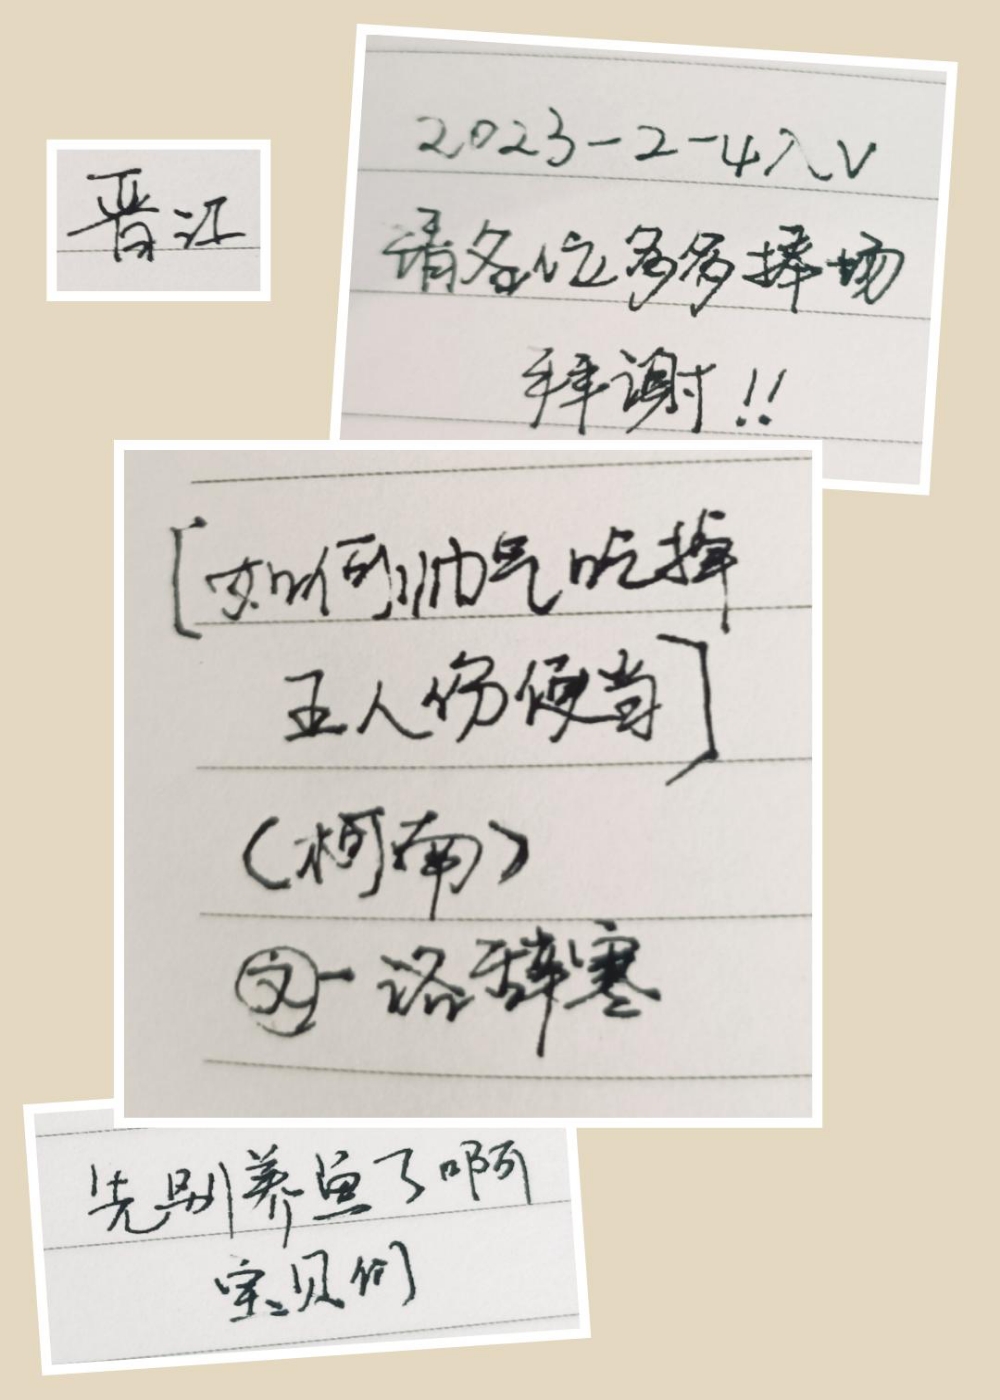 晋江
2023-2-4入V
请各位多多捧场
拜谢!!
[如何帅气吃掉
五人份便当]
(柯南)
文-洛辞寒
先别养鱼了啊
宝贝们